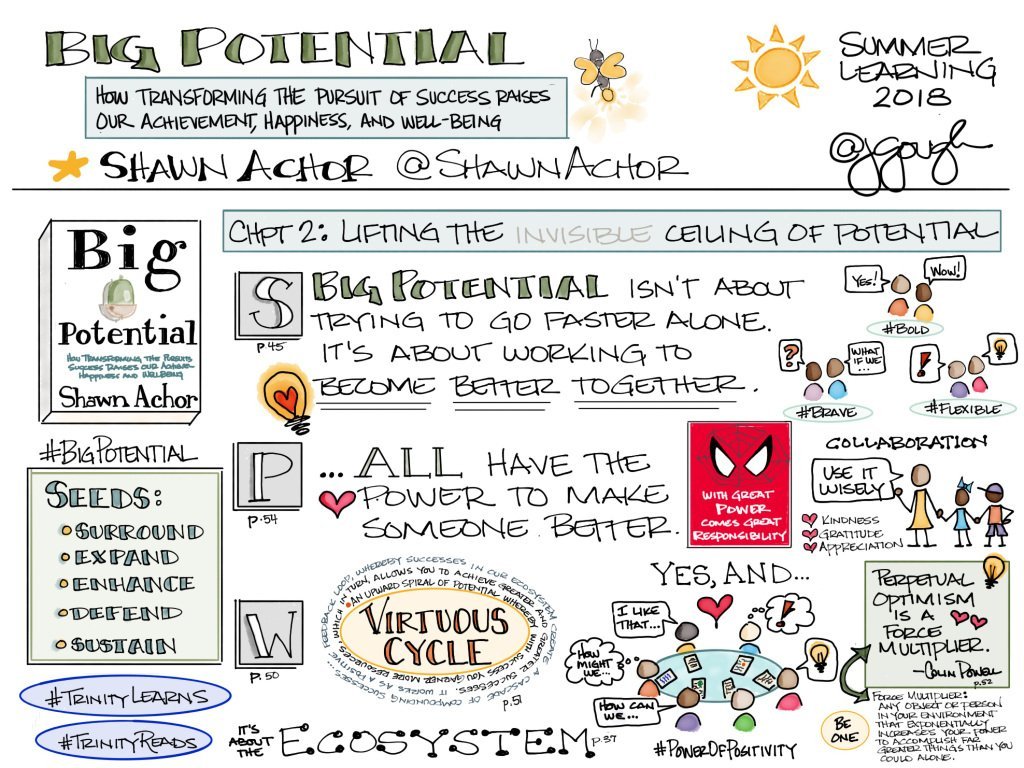 BIG POTENTIAL
HOW TRANSFORMING THE PURSUIT OF SUCCESS RAISES
OUR ACHIEVEMENT, HAPPINESS, AND WELL-BEING
SHAWN ACHOR @SHAWNACHOR
SUMMER
LEARNING
2018
@jgough
Big
Potential
HOW TRANSFORMING THE PURSUIT
SUCCESS RAISES OUR ACHIEVE-
HAPPINESS AND WELLBEING
Shawn Achor
CHPT 2: LIFTING THE INVISIBLE CEILING OF POTENTIAL
S
P45
BIG POTENTIAL ISN'T ABOUT
TRYING TO GO FASTER ALONE.
IT'S ABOUT WORKING TO
BECOME BETTER TOGETHER.
YES!
WOW!
#BOLD
?
WHAT
IF WE
...
#BRAVE
!
#FLEXIBLE
#BIGPOTENTIAL
SEEDS:
SURROUND
EXPAND
ENHANCE
DEFEND
SUSTAIN
#TRINITYLEARNS
#TRINITYREADS
P
P.54
... ALL HAVE THE
POWER TO MAKE
SOMEONE BETTER.
WITH GREAT
POWER
COMES GREAT
RESPONSIBILITY
COLLABORATION
USE IT
WISELY
KINDNESS
GRATITUDE
APPRECIATION
W
P.50
VIRTUOUS
CYCLE
AN UPWARD SPIRAL OF POTENTIAL WHEREBY WITH SUCCESS YOU GARNER MORE RESOURCES, WHICH IN TURN, ALLOWS YOU TO ACHIEVE GREATER AND GREATER SUCCESSES. IT WORKS AS A POSITIVE... FEEDBACK LOOP, WHEREBY SUCCESSES IN OUR ECOSYSTEM CREATE A CASCADE OF COMPOUNDING SUCCESSES
P.51
IT'S
ABOUT
THE
ECOSYSTEM
P.37
YES, AND...
I LIKE
THAT...
!
HOW
MIGHT
WE...
HOW CAN
WE...
#POWEROFPOSITIVITY
PERPETUAL
OPTIMISM
IS A
FORCE
MULTIPLIER.
-COLIN POWELL
P.52
BE
ONE
FORCE MULTIPLIER:
ANY OBJECT OR PERSON
IN YOUR ENVIRONMENT
THAT EXPONENTIALLY
INCREASES YOUR POWER
TO ACCOMPLISH FAR
GREATER THINGS THAN YOU
COULD ALONE.